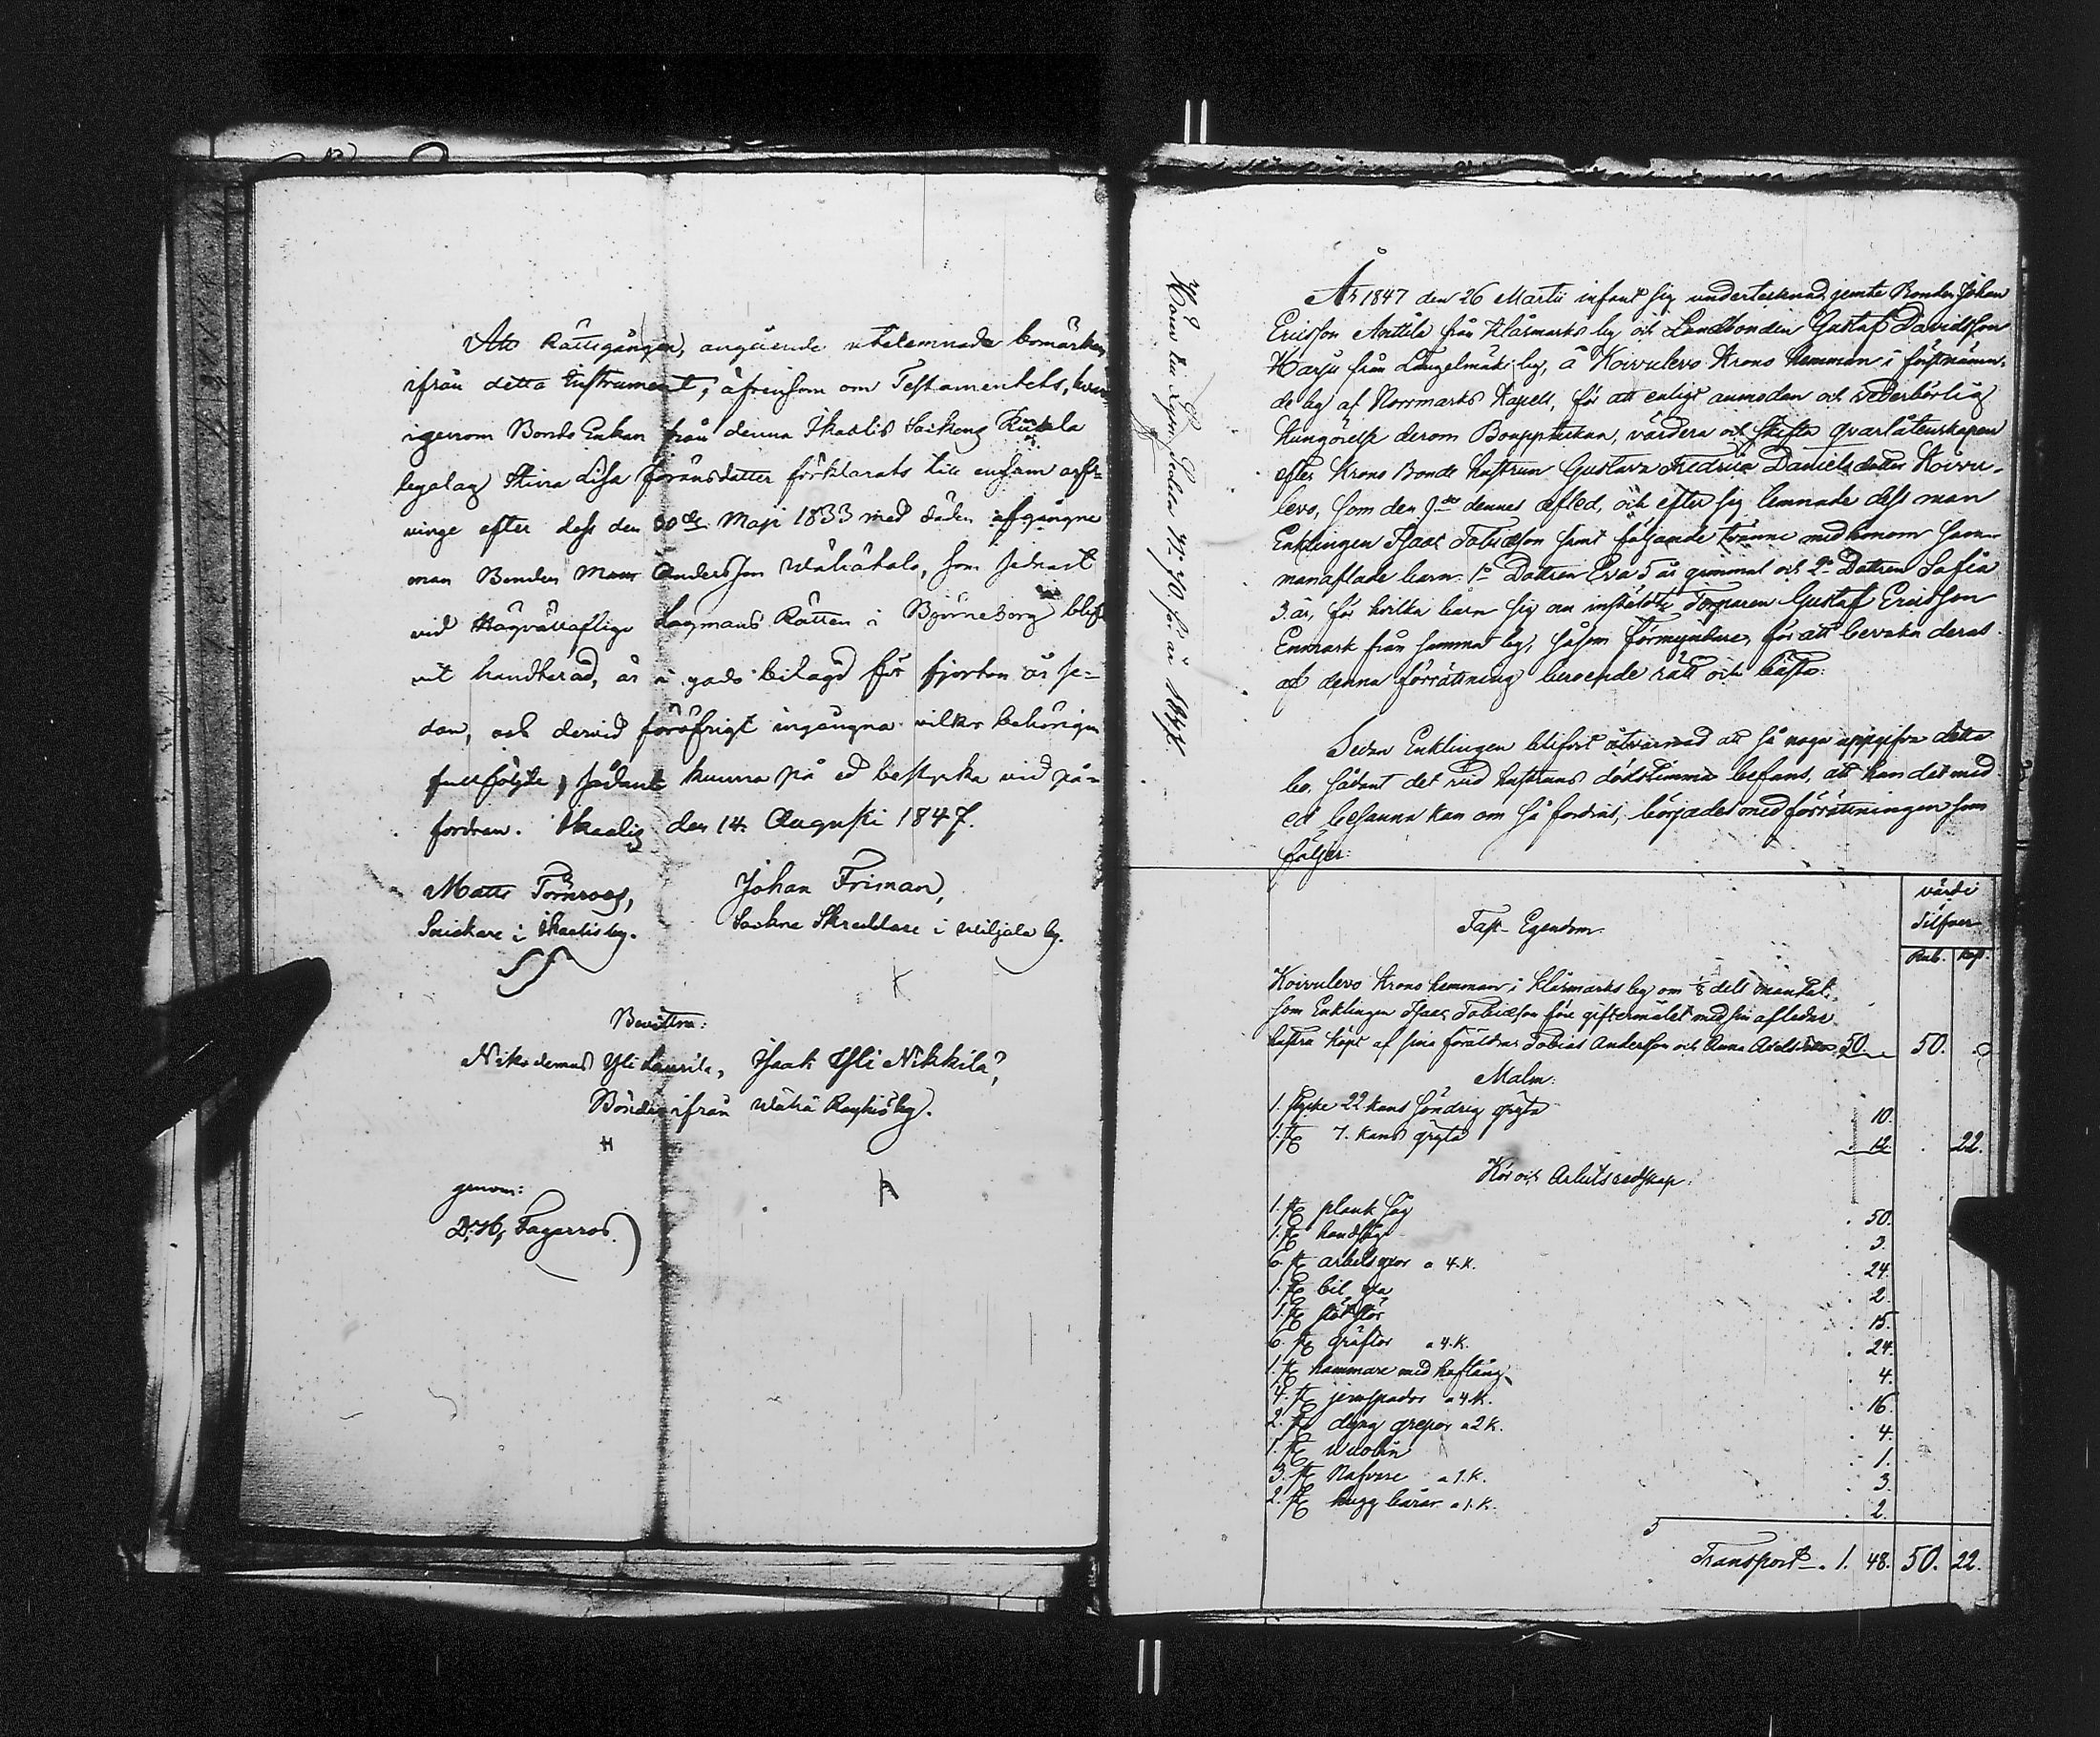 Att Rättegången, angående utelemnade bomärken
ifrån detta Instrument, äfvensom om Testamentets, hvar
igenom Bonde Enkan från denna Ikaalis Sockens
Stina Lisa Jöransdotter förklarats till ensam arf-
vinge efter dess den 30de Maji 1833 med döden afgångne
man Bonden Andersson Wähätalo, som sednast
vid Högvällofliga Lagmans Rätten i Björneborg blif-
vit handterad, är å gads bilagd för fjorton år se-
dan, och dervid föröfrigt ingångna vilkor behörigen
fullföljde, sådant kunna på ed bestyrka vid på-
fordran. Ikaalis den 14 Augusti 1847.
Matts Törnroos, Johan Friman,
Snickare i Ikaalis by. Sockne Skreddare i Miljala by.
Bevittna:
Nikodemus Yli Laurila, Isaak Yli Nikkilä,
Bönder ifrån Wähä Röyhiö by.
genom:
D. H. Fagerroos.
Hörer till § N° 70 för år 1847.
År 1847 den 26 Martii infant sig undertecknad, jemte Bonden Johan
Ericsson Anttila från Klåsmarks by och Landbonden Gustaf Davidsson
Harju från Längelmäki by, å Koivulevo Krono Hemman i förstnämn-
de by af Norrmarks Kapell, för att enligt anmodan och vederbörlig
kungörelse derom Boupptekna, värdera och skifta qvarlåtenskapen
efter Krono Bonde hustrun Gustava Fredrica Danielsdotter Koivu-
levo, som den 9de dennes afled, och efter sig lemnade dess man
Enklingen Isaac Tobiasson samt följande tvänne med honom sam-
manaflade barn: 1° Dottren Eva 5 år gammal och 2° Dottren Sofia
3 år, för hvilka barn sig nu inställde Torparen Gustaf Ericsson
Enmark från samma by, såsom förmyndare, för att bevaka deras
af denna förrättning beroende rätt och bästa:
Sedan Enklingen blifvit åtvarnad att så noga uppgifva detta
bo, sådant det vid hustruns dödstimma befans, att han det med
ed besanna kan om så fordras, började med förrättningen som
följer:
värde
Silfver
Fast Egendom
Rub. Kop.
Koivulevo Krono hemman i Klåsmarks by om 1/8 dels mantal,
som Enklingen Isaac Tobiasson före giftermålet med sin afledne
hustru köpt af sina föräldrar Tobias Andersson och Anna 50. 50.
Malm:
1. stycke 22 kans söndrig gryta 10.
1. st 7. kans gryta 12. 22.
Kör och Arbetsredskap:
1. st plank såg 50.
1. st handsåg 3.
6. st arbetsyxor a 4. K. 24.
1. st bil yxa 2.
1. st 15.
6. st gräftor a 4. K. 24.
1. st hammare med hoftång 4.
4. st jernspador a 4 K. 16.
2. st dyng grepor a 2 K. 4.
1. st 1.
3. st Nafvare a 1. K. 3.
2. st hugg a 1. K. 2.
Transport 1. 48. 50. 22.